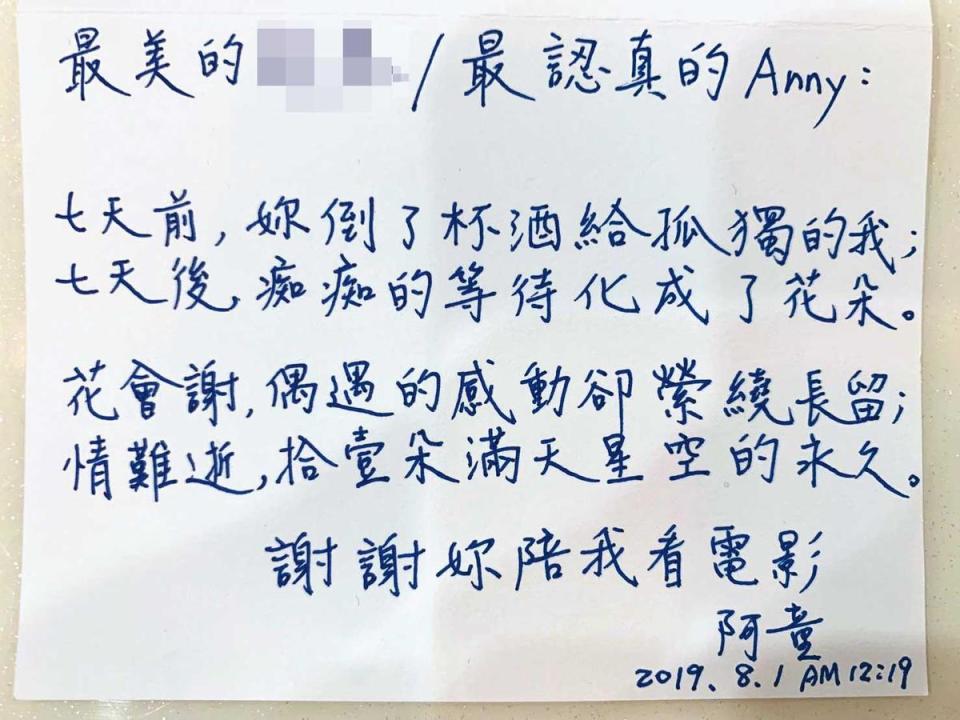 最美的 / 最認真的 Anny：
七天前，妳倒了杯酒給孤獨的我；
七天後，痴痴的等待化成了花朵。
花會謝，偶遇的感動卻縈繞長留；
情難逝，拾壹朵滿天星空的永久。
謝謝妳陪我看電影
阿童
2019. 8. 1 AM 12:19